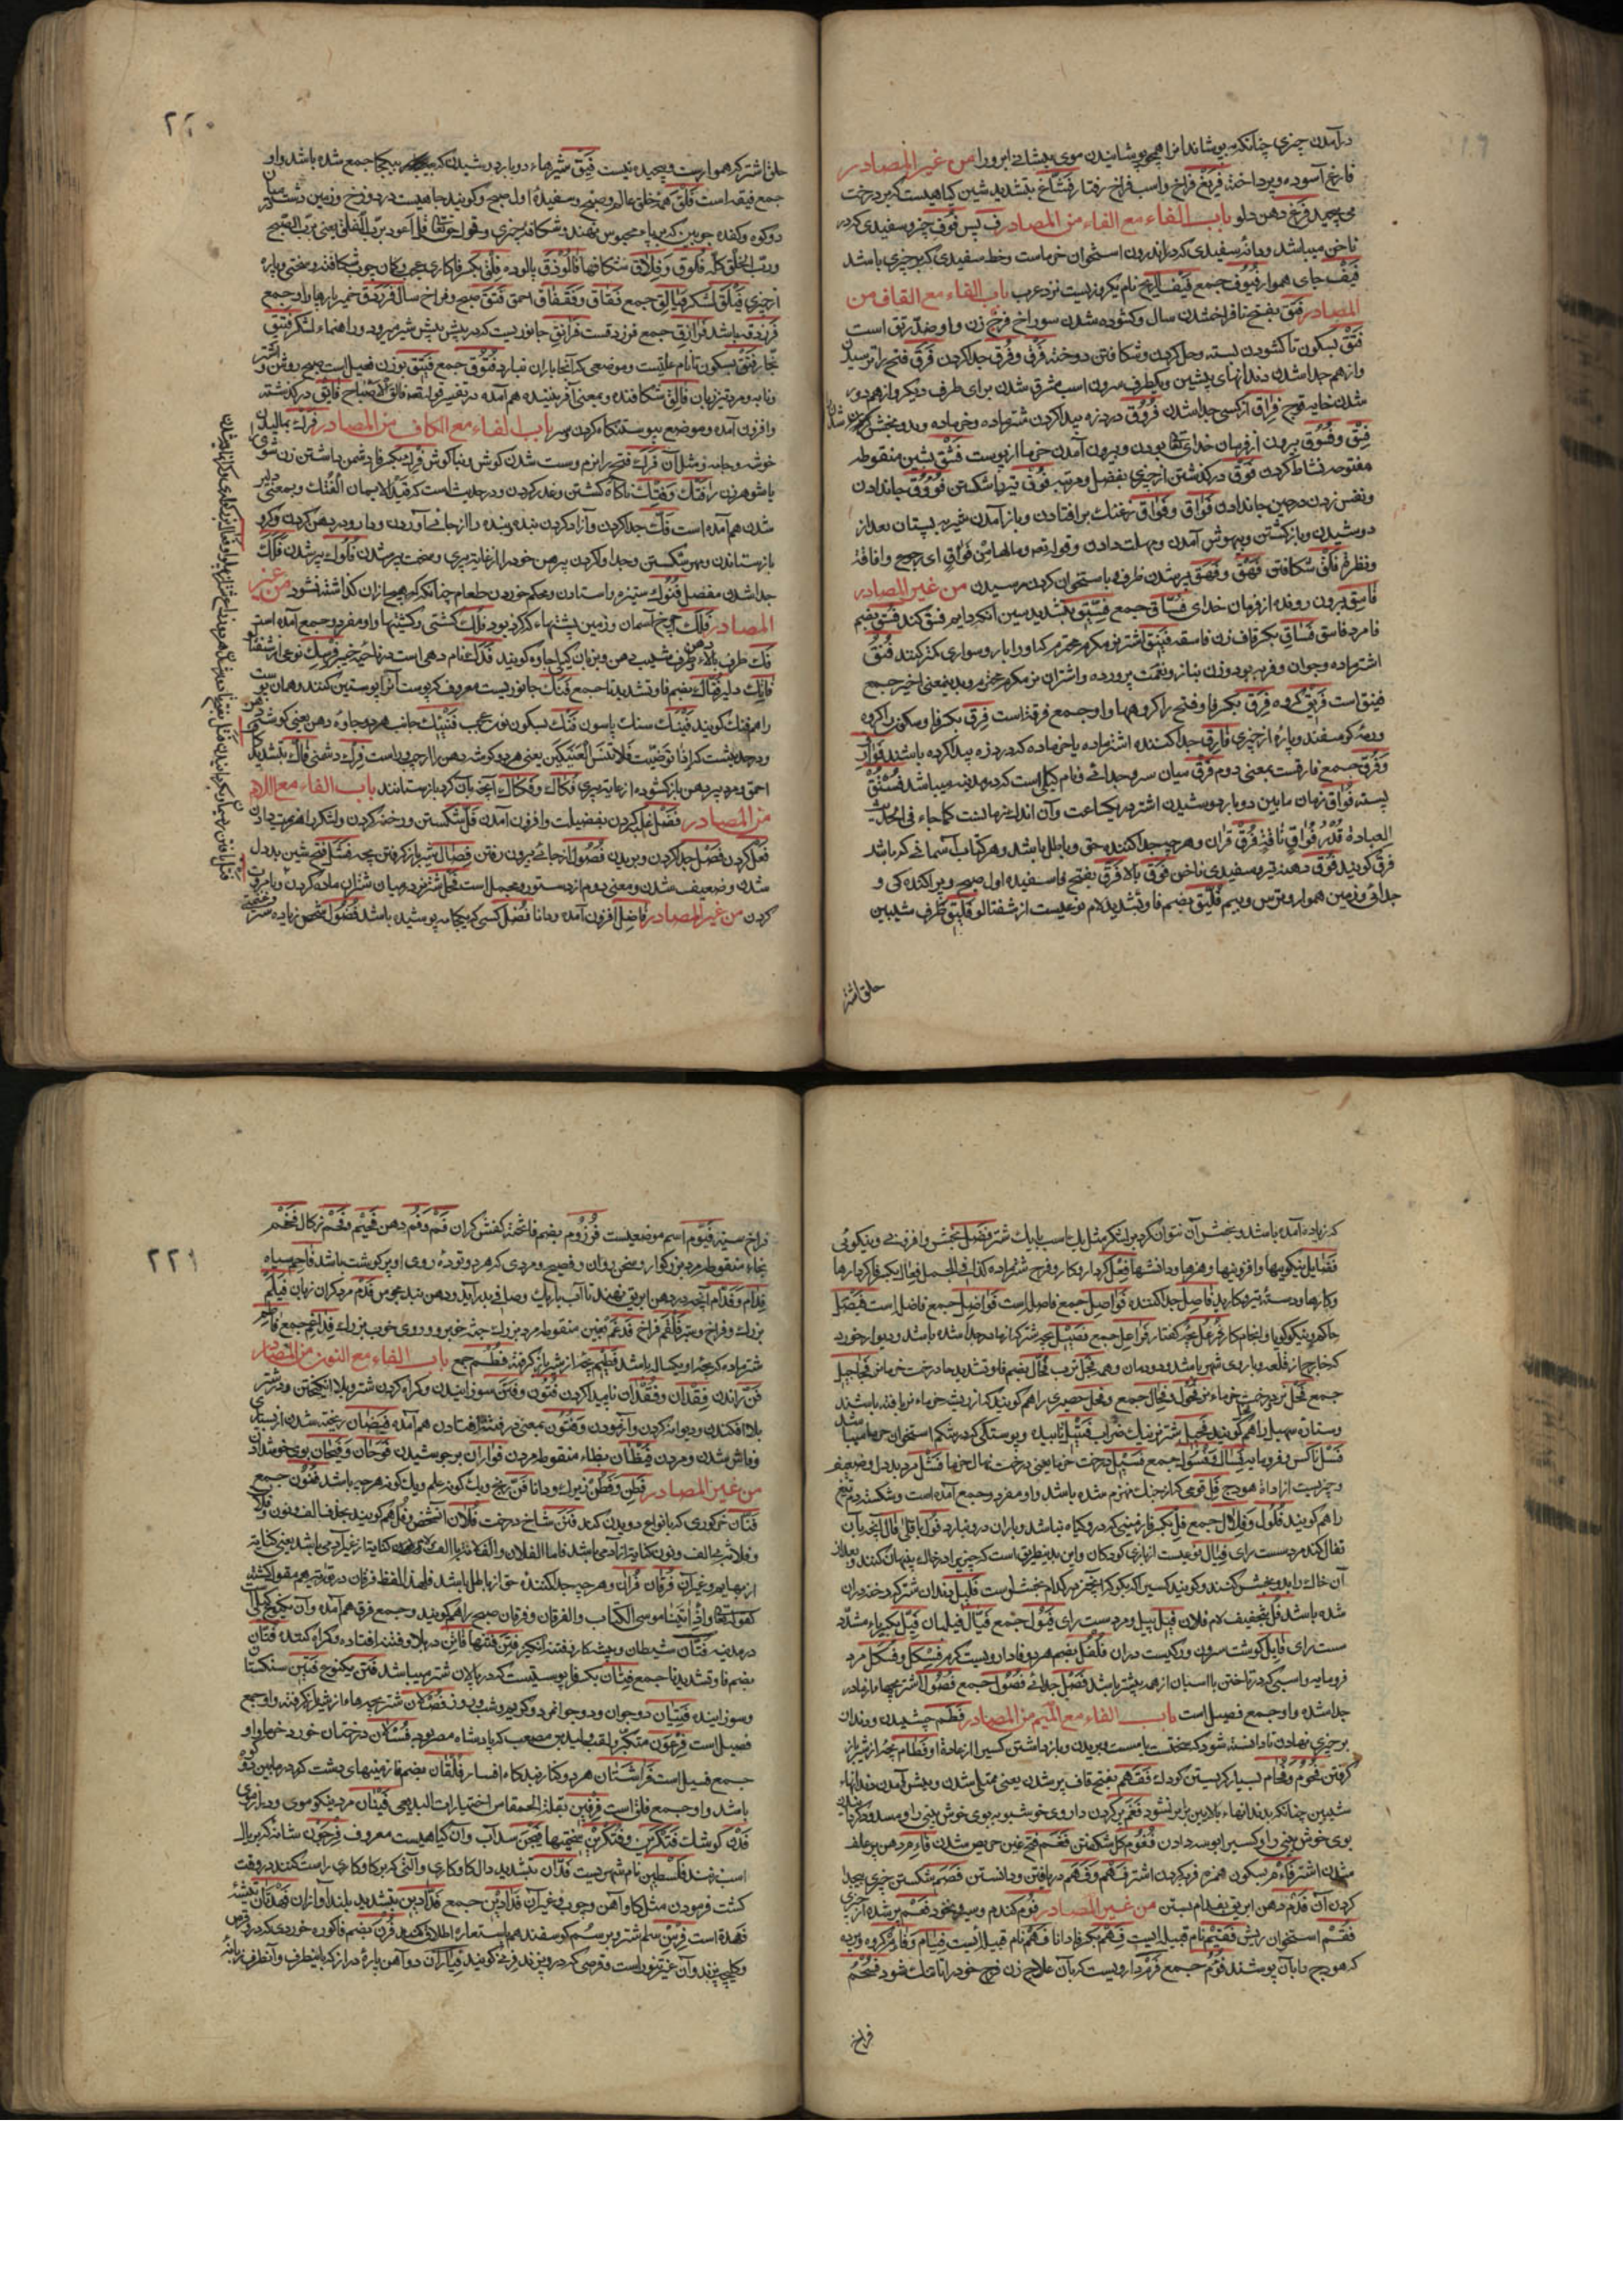 درآمدن چیزی چنانکه بپوشاند انرا همچو پوشانیدن موی پیشانی ابرو را من غیر المصادر
فارغ آسوده و پرداخته فریغ فراخ واسب فراخ رفتار فشاغ بتشدید شین کیاهیست که بر درخت
می پیچد فرغ دهن دلو باب الفاء مع الفاء من المصادر ف پس فوف چیز و سفیدی که در
ناخن میباشد ودانه سفیدی که در اندرون استخوان خرماست وخط سفیدی که بر چیزی باشد
فیف جای هموار فیوف جمع فیف الریح نام یکروزیست نزد عرب باب الفاء مع القاف من
المصادر فتق بفتح تا فراخ شدن سال وکشوده شدن سوراخ فرج زن واو ضد رتق است
فتق بسکون تا کشودن بسته وحل کردن وشکافتن دوخته فرق وفرق جدا کردن فرق فتح را ترسیدن
واز هم جدا شدن دندانهای پیشین ویکطرف سرون اسب مشرق شدن برای طرف دیکر واز هم دور
شدن خایه قوچ فراق از کسی جدا شدن فروق درد زه پیدا کردن شتر ماده وخر ماده
فسق وفسوق بیرون از فرمان خدای تعا بودن وبیرون آمدن خرما از پوست فشق بشین منقوطه
مفتوحه نشاط کردن فوق در کذشتن از چیزی بفضل ومرتبه فوق تیر را شکستن فووق جان دادن
ونفس زدن در حین جان دادن فواق وفواق زغنک برافتادن وباز آمدن شیر به پستان بعد از
دوشیدن وباز کشتن وبهوش آمدن ومهلت دادن وقوله تعه ومالها من فواق ای رجوع وافاقة
ونظرة فلق شکافتن فهق وفهق پر شدن ظرف با ستخوان کردن رسیدن من غیر المصادر
فاسق بیرون رونده از فرمان خدای فساق جمع فسیق بتشدید سین آنکه دایم فسق کند فسق بضم
فا مرد فاسق فساق بکسر قاف زن فاسقه فنیق اشتر نر مکرم محترم که اورا بار وسواری نکنند فنق
اشتر ماده وجوان وفربه بود وزن بناز ونعمت پرورده واشتران نر مکرم محترم وبدینمعنی اخیر جمع
فنیق است فریق کروه فرق بکسر فا وفتح را کروهها واو جمع فرقة است فرق بکسر فا وسکون را کروه
ورمه کوسفند وپاره از چیزی فارق جدا کننده اشتر ماده یا خر ماده که درد زه پیدا کرده باشد فوارق
وفرق جمع فارقست بمعنی دوم فرق میان سر وجدائی ونام کیلی است که در مدینه میباشد فستق
پسته فواق زمان ما بین دو بار دوشیدن اشتر در یکساعت وآن اندک زمانست کما جاء فی الحدیث
العیادة قدر فواق ناقة فرق قران وهر چه جدا کننده حق وباطل باشد وهر کتاب آسمانی که باشد
فرق کویند فوق دهنه تیر وسفیدی ناخن فوق بالا فرق بفتح فا سفیده اول صبح وپراکنده کی و
جدائی وزمین هموار وترس وبیم فلیق بضم فا وتشدید لام نوعیست از شفتالو فلیق طرف شیبین
حلق اشتر
٢٢٠
حلق اشتر که هموار است وپیچیده نیست فیق شیرهاء دوبار دوشیدن که بیکجا جمع شده باشد واو
جمع فیقه است فلق همه خلق عالم وصبح وسفیده اول صبح وکویند جاهیست در دوزخ وزمین پست میان
دو کوه وکنده چوبین که بر پاء محبوس نهند وشکاف هر چیزی وقوله تعا قل اعوذ برب الفلق یعنی برب الصبح
ورب الخلق کله فلوق وفلاق شکافها فالوذق پالوده فلق بکسر فا کاری عجب وکمان چوب شکافته وسختی وپاره
از چیزی فیلق لشکر فیالق جمع فقاق وفقفاق احمق فتق صبح وفراخ سال فرزدق خمیر پارها واو جمع
فرزدقه باشد فرازق جمع فرزدقست فرانق جانوریست که در پیش پیش شیر میرود وراهنماء لشکر فیتق
نجار فتق بسکون تا نام علتیست وموضعی که آنجا باران نبارد فتوق جمع فتیق بوزن فعیل است صبح روشن واشتر
وتابه ومرد تیز زبان فالق شکافنده وبمعنی آفریننده هم آمده در تفسیر قوله تعه فالق الاصباح فایق در کذشته
وافزون آمده وموضع پیوستنکاه کردن وسر باب الفاء مع الکاف من المصادر فرک بمالیدن
خوشه وجامه ومثل آن فرک فتح را نرم وسست شدن کوش وبناکوش فرک بکسر فا دشمن داشتن زن شوی
با شوهر زن را فتک وفتک ناکاه کشتن وغدر کردن ودر حدیثست که قید الایمان الفتک وبمعنی دلیر
شدن هم آمده است فک جدا کردن وآزاد کردن بنده وبنده را از جائی آوردن ودارو در دهن کردن وکرو
باز ستاندن ومهر شکستن وجدا کردن پیرهن خود را از غایت پیری وسخت پیر شدن فکوک پیر شدن فکک
جدا شدن مفصل فنوک ستیزه راستادن ومحکم خوردن طعام چنانکه هیچ ازان کذاشته نشود من غیر
المصادر فلک چرخ آسمان وزمین پشتهاء که کرد بود فلک کشتی وکشتیها واو مفرد وجمع آمده است
فک طرف بالاء دهن وطرف شیب دهن وبزبان کیلی جاوه کویند فدک اعنام دهی است در ناحیه خیبر فرسک نوعی از شفتالو
فاتک دلیر فتاک بضم فا وتشدید تا جمع فنک جانوریست معروف که پوست آنرا پوستین کنند وهمان پوست
راهم فنک کویند فینک سنک پاسون فنک بسکون نون عجب فنیک جانب هر دو جاوه دهن یعنی کوشهٔ
ودر حدیثست که اذا توضیت فلا تنس الفنیکین یعنی هر دو کوشه دهن را از چپ وراست فرک دشمنی فاک بتشدید کاف
احمق ومرد پیر دهن باز کشوده از غایت پیری فکاک وفکاک آنچه بآن کرو باز ستانند باب الفاء مع اللام
من المصادر فضل غلبه کردن بفضیلت وافزون آمدن فل شکستن ورخنه کردن ولشکر را هزیمت دادن
فعل کردن فصل جدا کردن وبریدن فصول از جائی بیرون رفتن فصال شیر باز کرفتن بچه فشل فتح شین بددل
شدن وضعیف شدن ومعنی دوم از دستور ومجمل است فحل اشتر نر در میان شتران ماده کردن
کردن من غیر المصادر فاضل افزون آمده ودانا فضل کسی که یکجامه پوشیده باشد فضول شخص زیاده سر
که زیاده آمده باشد وبخش آن نتوان کردن بر لشکر مثل یک اسب یا یک شتر فضل بخشش وافزونی ونیکوئی
فضایل نیکوییها وافزونیها وهنرها ودانشها فعل کردار وکار وفرج شتر ماده کذا فی المجمل فعال بکسر فا کردارها
وکارها ودسته تیشه کاریدیه فاصل جدا کننده فواصل جمع فاصل است فواضل جمع فاضل است فیصل
حاکم ونیکو کویا وانجام کار فرعل بچه کفتار فراعل جمع فصیل بچه شتر که از مادر جدا شده باشد ودیوار خورد
که خارج از قلعه وباروی شهر باشد ودودمان وهم فحل ترب فحال بضم فا وتشدید حا درخت خرماء نر فحاحیل
جمع فحل نر ودرخت خرماء نر فحول وفحال جمع وفحل حصیری را هم کویند که از ریشه خرماء نر بافته باشند
وستاره سهیل را هم فحل کویند فحیل اشتر نر نیک ضراب فتیل تابیده وپوستکی که در شکم استخوان خرما میباشد
فسل ناکس وفرومایه فسال وفسول جمع فسیل درخت خرما یعنی درخت نهال خرما فشل مرد بددل وضعیف
وچیزیست از اداة هودج فل قومی که از جنک منهزم شده باشد واو مفرد وجمع آمده است وشکسته دم تیغ
راهم کویند فلول وفلال جمع فل بکسر فا زمینی که در و کیاه نباشد وباران درو نبارد فول باقلی فال آنچه بآن
تفال کنند مرد سست رای فیال نوعیست از بازی کودکان واین بدینطریق است که چیزی در خاک پنهان کنند وبعد از
آن خاک را بدو بخش کنند وکویند کسی را که بکو که آن چیز در کدام بخش است فلیل دندان شتر که رخنه دران
شده باشد فل بتخفیف لام فلان فیل پیل ومرد سست رای فیول جمع فیال فیلبان فیل بکسر یاء مشدد
سست رای فایل کوشت سرون ورکیست دران فلفل بضم هر دو فا دارویست کرم فسکل وفسکل مرد
فرومایه واسبی که در تاختن با اسبان از همه پیشتر باشد فصل جدائی فصول جمع فصول اشتر بچها ما از مادر
جدا شده واو جمع فصیل است باب الفاء مع المیم من المصادر فطم چشیدن ودندان
بر چیزی نهادن تا دانسته شود که سختست یا سست وبریدن وباز داشتن کسی را از عادة او فطام بچه را از شیر باز
کرفتن فحوم وفحام بسیار کریستن کودک فقم بفتح قاف پر شدن یعنی ممتلی شدن وپیش آمدن دندانهاء
شیبین چنانکه بدندانهاء بالایین برابر نشود فغم پر کردن داروی خوشبو به بوی خوش بینی را ومسدود کردن
بوی خوش بینی را وکسی را بوسه دادن فغوم کل شکفتن فغم فتح غین حریص شدن فاءم دهن پر علف
شدن اشتر فاءم بسکون همزه فربه کردن اشتر فهم وفهم دریافتن ودانستن فصم شکستن چیزی بیجدا
کردن آن فدم دهن ابریق بفدام بستن من غیر المصادر فوم کندم وسیر ونخود فعم پر شده از چیزی
فقم استخوان ریش فقیم نام قبیله ایست فهم بکسر فا دانا فهم نام قبیله ایست فیام وفئام کروه وپرده
که هودج را بآن پوشند فوم جمع فرم دارویست که بآن علاج زن فرج خود را تا تنک شود فسحم
فراخ
٢٢١
فراخ سینه فیوم اسم موضعیست فرزوم بضم فا تخته کفش کران فم وفم دهن فحیم وفحم زکال فخم
بخاء منقوطه مرد بزرکوار وسخن روان وفصیح ومردی که هر دو توده روی او پر کوشت باشد فاحم سیاه
فدام وفدام آنچه در دهن ابریق نهند تا آب باریک وصافی بدر آید ودهن بند مجوس فدم مرد کران زبان فیلم
بزرک وفراخ وبیر فلقم فراخ فدغم بغین منقوطه مرد بزرک جثه خوبرو وروی خوب بزرک فداغم جمع فاطم
شتر ماده که بچه او یکساله باشد فطیم بچه از شیر باز کرفته فطم جمع باب الفاء مع النون من المصادر
فن راندن فقدان وفقدان ناپیدا کردن فتون وفتن سوزانیدن وکمراه کردن شتر وبلا انکیختن ودر شتر
بلا افکندن ودیوانه کردن وآزمودن وفتون بمعنی در فتنه افتادن هم آمده فیضان ریخته شدن از بسیاری
وفاش شدن ومردن فیظان بظاء منقوطه مردن فواران برجوشیدن فوحان وفیحان بوی خوش دادن
من غیر المصادر فطن وفطن زیرک ودانا فن رنج ویک کونه علم ویک کونه هر چه باشد فنون جمع
فنان خرکوری که بانواع دویدن کند فنن شاخ درخت فلان آن شخص وفل هم کویند بحذف الف ونون وفلانة
وفلانة بی الف ونون کنایت از آدمی باشد فاما الفلان والفلانة با الف ولام کنایة از غیر آدمی باشد یعنی کنایة
از بهایم وغیر آن فرقان قران وهر چه جدا کننده حق از باطل باشد فلهذا لفظ فرقان در توریة هم مقول کشته
کقوله تعا واذ اتینا موسی الکتاب والفرقان وفرقان صبح را هم کویند وجمع فرق هم آمده وآن یکنوع کیلی
در مدینه فتان شیطان وپیشکار فتنه انکیز فتن فتنها فاتن در بلا وفتنه افتاده وکمراه کننده فتان
بضم فا وتشدید تا جمع فتان بکسر فا پوستیست که در پالان شتر میباشد فتن یکنوع فتین سنکستان
وسوزانیده فتیان دو جوان ودو جوانمرد وکویم شب وروز فصلان شتر بچه هاء از شیر باز کرفته واو جمع
فصیل است فرعون متکبر ولقب ولید بن مصعب که پادشاه مصر بود فسلان درختان خورد خرما واو
جمع فسیل است فراشتان هر دو کناره بندکاه افسار فلقان بضم فا زمینهای پشت که در ما بین دو کوه
باشد واو جمع فلق است فرفین بقلة الحمقا من اختیارات البدیعی فینان مرد نیکو موی ودراز موی
فدن کوشک فتکرین وفتکرین سختیها فیجن سداب وآن کیاهیست معروف فرجون شانه که بر بال
اسب زنند فلسطین نام شهریست فدان بتشدید دال کاو کاری وآلتی که بر کاو کاری راست کنند در وقت
کشت فرمودن مثل کاو آهن وچوب وغیر آن فدادین جمع فدادین بتشدید بلند آوازان فهدتان تثنیه
فهده است فرسن سم شتر وبر سم کوسفند هم باستعاره اطلاق کنند فرن بضم فا کوره خوردی که در و قرص
وکلیچه پزند وآن غیر تنور است وقرصی که در و پزند فرنی کویند فیاران دو آهن پاره دراز که باینطرف وآنطرف زبانه